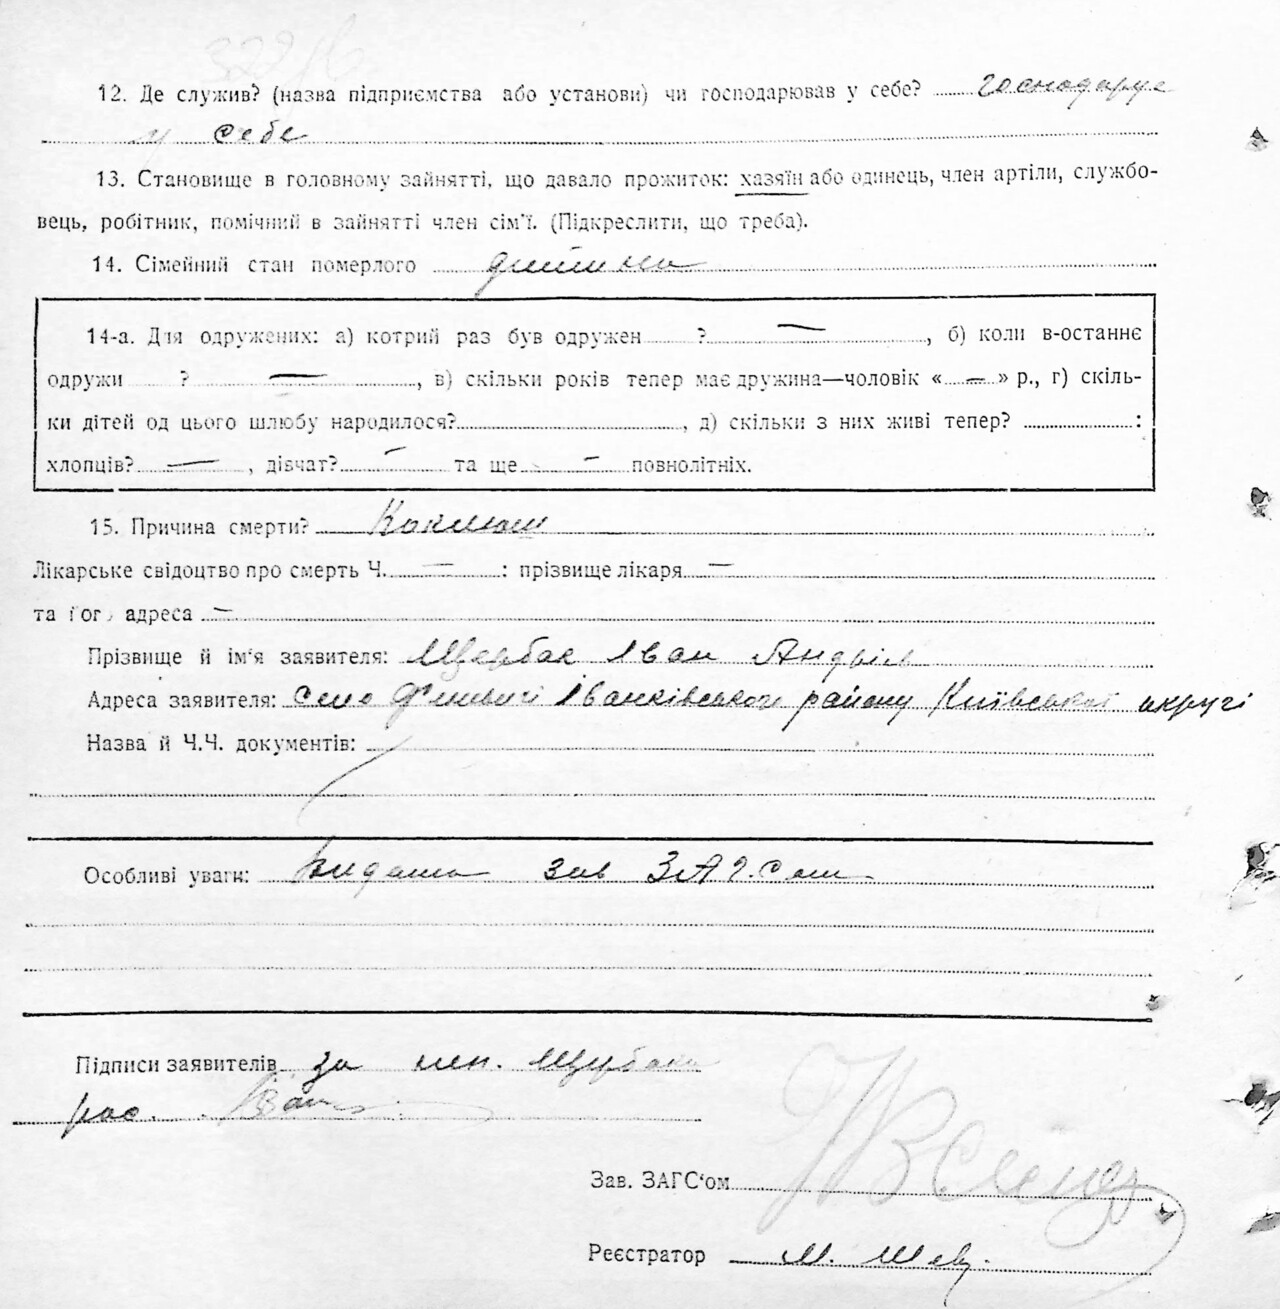 12. Де служив? (назва підприємства або установи) чи господарював у себе? господарує
у себе
13. Становище в головному зайнятті, що давало прожиток: хазяїн або одинець, член артіли, службо-
вець, робітник, помічний в зайнятті член сім'ї. (Підкреслити, що треба).
14. Сімейний стан померлого дитина
14-а. Для одружених: а) котрий раз був одружен ? — , б) коли в-останнє
одружи ? — , в) скільки років тепер має дружина—чоловік « — » р., г) скіль-
ки дітей од цього шлюбу народилося? , д) скільки з них живі тепер? :
хлопців? — , дівчат? — та ще — повнолітніх.
15. Причина смерти? Коклюш
Лікарське свідоцтво про смерть Ч. — : прізвище лікаря —
та адреса —
Прізвище й ім'я заявителя: Щербак Іван Андрієв
Адреса заявителя: Село Іванківського району Київської округі
Назва й Ч.Ч. документів:
Особливі уваги: зав ЗАГСом
Підписи заявителів за неп. Щербака
рос. Іван
Зав. ЗАГС'ом
Реєстратор М. Шев.